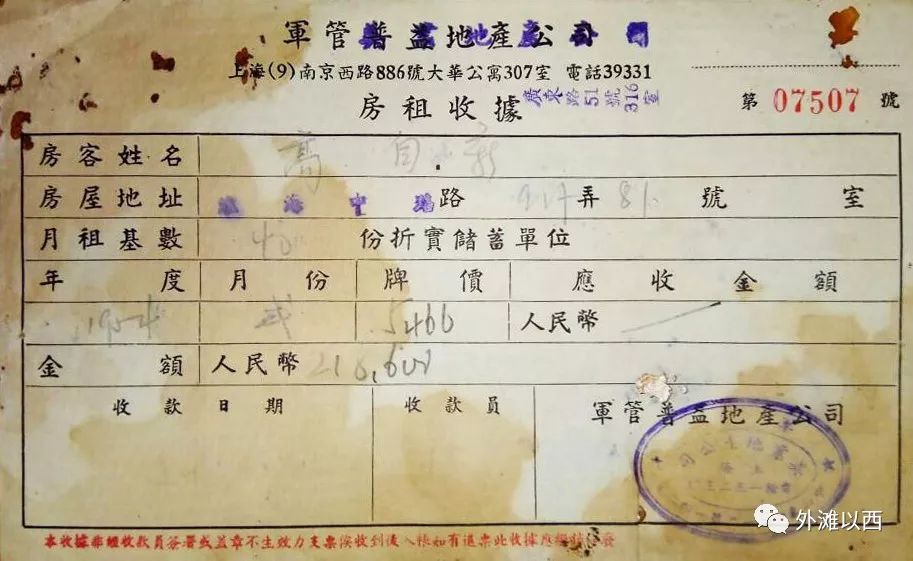 軍管普益地產公司
上海(9)南京西路886號大華公寓307室 電話39331
廣東路51號316室
房租收據
第 07507 號
房客姓名 高自
房屋地址 路 弄 81 號 室
月租基數 40 份折實儲蓄單位
年度 月份 牌價 應收金額
1954 弍 5466 人民幣
金額 人民幣
收款日期 收款員 軍管普益地產公司
本收據非經收款員簽署或蓋章不生效力支票俟收到後入帳如有退票此收據應
外滩以西